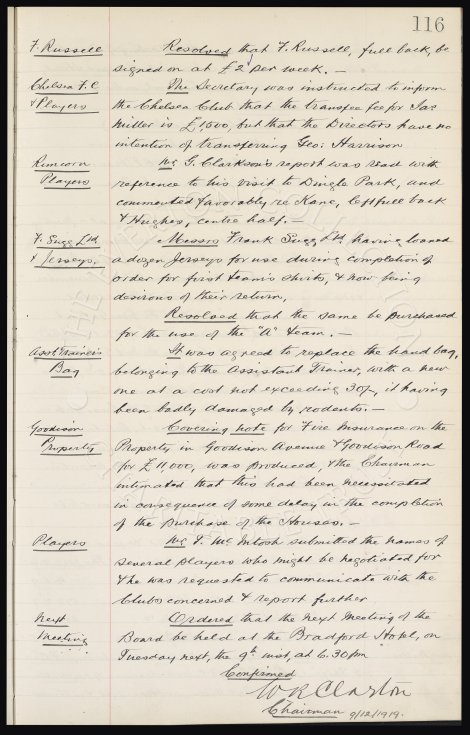 116
F. Russell Resolved that F. Russell, full back, be
signed on at £2 per week. —
Chelsea F.C The Secretary was instructed to inform
& Players the Chelsea Club that the transfer fee for Jas
Miller is £1,500, but that the Directors have no
intention of transferring Geo: Harrison
Runcorn Mr G. Clarkson's report was read with
Players reference to his visit to Dingle Park, and
commented favorably re Kane, left full back
& Hughes, centre half. —
F. Sugg Ltd. Messrs Frank Sugg Ltd, having loaned
& Jerseys. a dozen Jerseys for use during completion of
order for first team's shirts, & now being
desirous of their return,
Resolved that the same be purchased
for the use of the "A" team. —
Asst Trainer's It was agreed to replace the hand bag,
Bag belonging to the Assistant Trainer, with a new
one at a cost not exceeding 30/-, it having
been badly damaged by rodents. —
Goodison Covering note for Fire Insurance on the
Property Property in Goodison Avenue & Goodison Road
for £11,000, was produced, & the Chairman
intimated that this had been necessitated
in consequence of some delay in the completion
of the purchase of the Houses. —
Players Mr T. McIntosh submitted the names of
several players who might be negotiated for
& he was requested to communicate with the
Clubs concerned & report further
Next Ordered that the next Meeting of the
Meeting Board be held at the Bradford Hotel, on
Tuesday next, the 9th inst, at 6.30pm
Confirmed
W R Clayton
Chairman 9/12/1919.